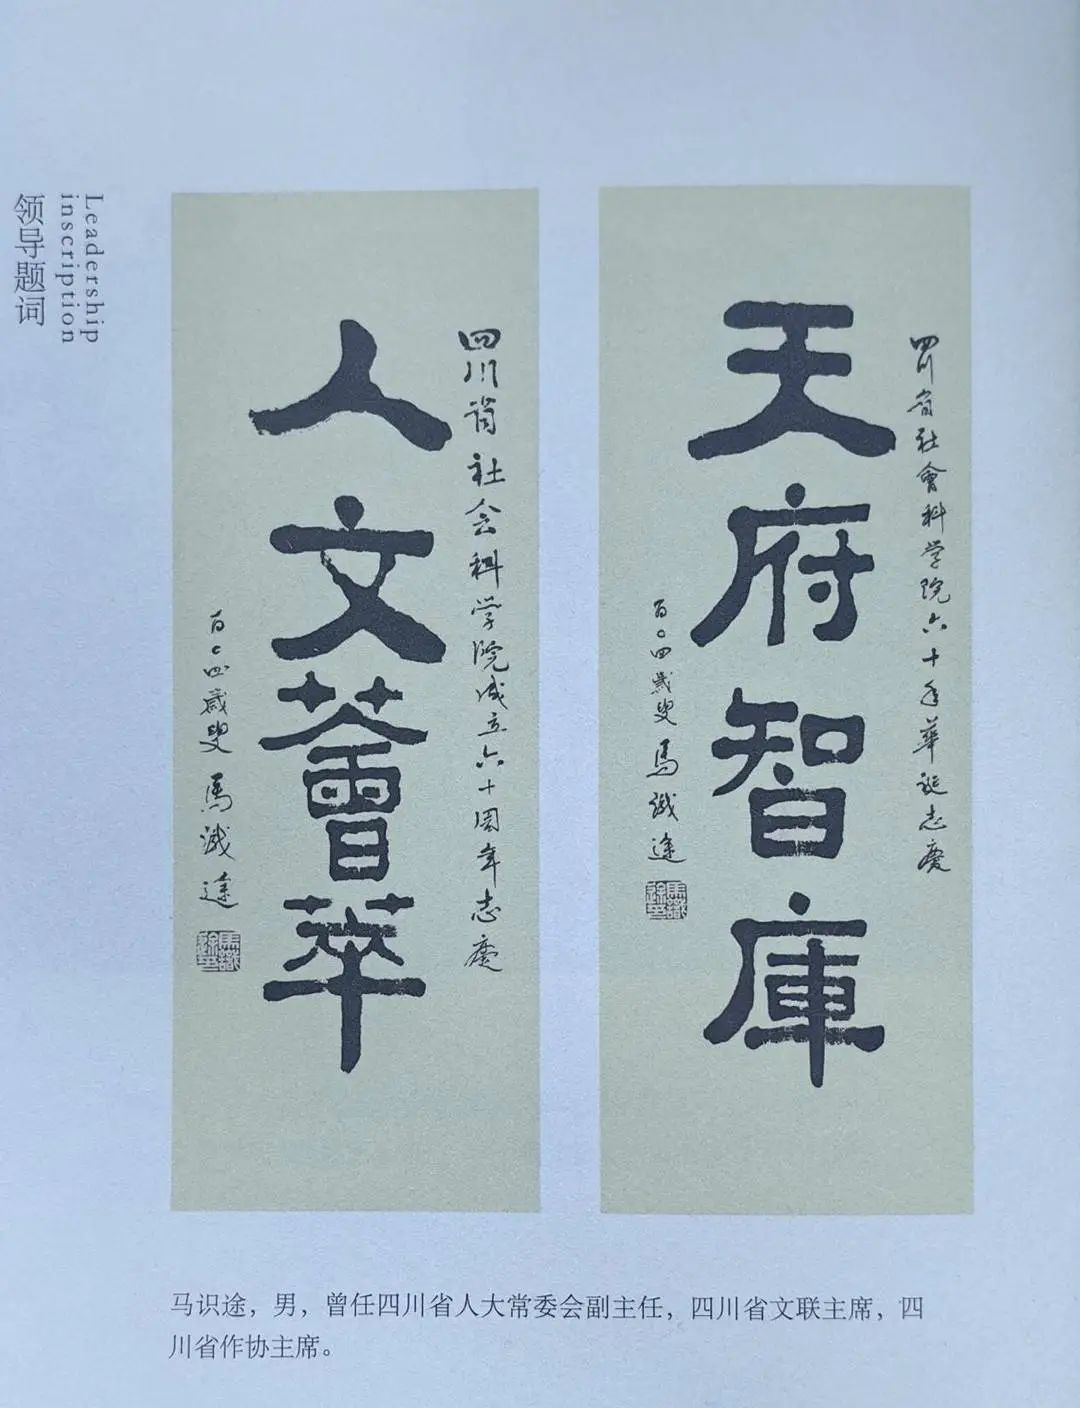 领导题词
Leadership
inscription
天府智庫
四川省社會科学院六十年華诞志慶
百〇四歲叟 馬識途
人文薈萃
四川省社会科学院成立六十周年志慶
百〇四歲叟 馬識途
马识途，男，曾任四川省人大常委会副主任，四川省文联主席，四
川省作协主席。